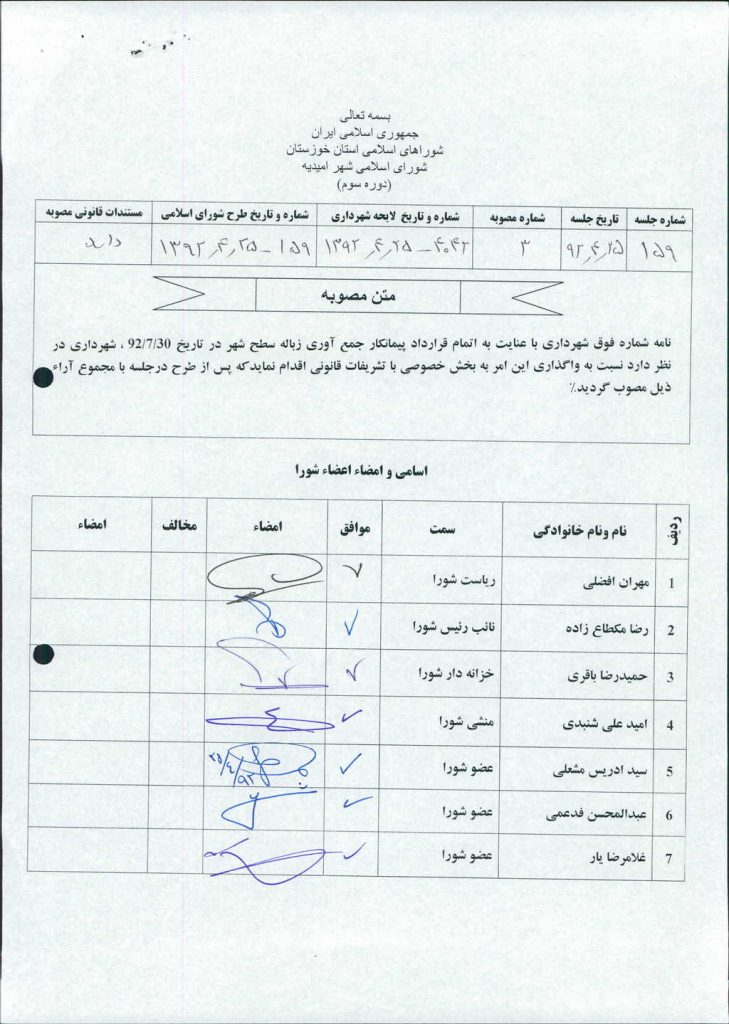 بسمه تعالی
جمهوری اسلامی ایران
شوراهای اسلامی استان خوزستان
شورای اسلامی شهر امیدیه
(دوره سوم)
شماره جلسه تاریخ جلسه شماره مصوبه شماره و تاریخ لایحه شهرداری شماره و تاریخ طرح شورای اسلامی مستندات قانونی مصوبه
۱۵۹ ۹۲,۴,۲۵ ۳ ۴۰۴۲ - ۱۳۹۲,۴,۲۵ ۱۵۹ - ۱۳۹۲,۴,۲۵ دارد
متن مصوبه
نامه شماره فوق شهرداری با عنایت به اتمام قرارداد پیمانکار جمع آوری زباله سطح شهر در تاریخ 92/7/30 ، شهرداری در
نظر دارد نسبت به واگذاری این امر به بخش خصوصی با تشریفات قانونی اقدام نمایدکه پس از طرح درجلسه با مجموع آراء
ذیل مصوب گردید.٪
اسامی و امضاء اعضاء شورا
ردیف نام ونام خانوادگی سمت موافق امضاء مخالف امضاء
1 مهران افضلی ریاست شورا ✓
2 رضا مکطاع زاده نائب رئیس شورا ✓
3 حمیدرضا باقری خزانه دار شورا ✓
4 امید علی شنبدی منشی شورا ✓
5 سید ادریس مشعلی عضو شورا ✓ ۹۲/٤/۲۵
6 عبدالمحسن فدعمی عضو شورا ✓
7 غلامرضا یار عضو شورا ✓